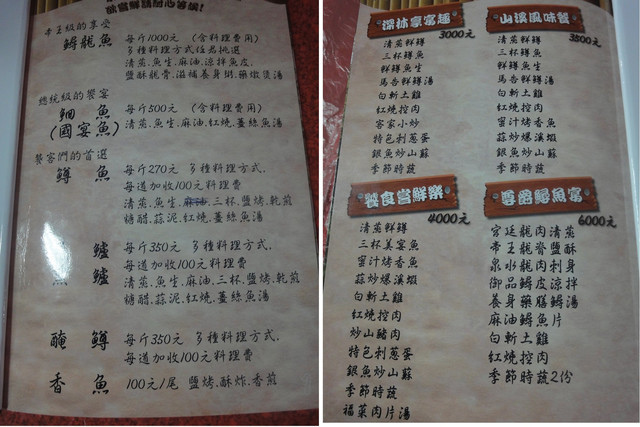 帝王級的享受
鱘龍魚
每斤1000元（含料理費用）
多種料理方式任君挑選
清蒸.魚生.麻油.涼拌魚皮.
鹽酥龍骨.滋補養身粥.藥燉煲湯
總統級的饗宴
鮰魚
(國宴魚)
每斤500元（含料理費用）
清蒸.魚生.麻油.紅燒.薑絲魚湯
饕客們的首選
鱒魚
每斤270元 多種料理方式.
每道加收100元料理費
清蒸.魚生.麻油.三杯.鹽烤.乾煎
糖醋.蒜泥.紅燒.薑絲魚湯
鱸
鱸
每斤350元 多種料理方式.
每道加收100元料理費
清蒸.魚生.麻油.三杯.鹽烤.乾煎
糖醋.蒜泥.紅燒.薑絲魚湯
醃鱒
每斤350元 多種料理方式.
每道加收100元料理費
香魚
100元/1尾 鹽烤.酥炸.香煎
深林享富趣
3000元
清蒸鮮鱒
三杯鮮鱒
鮮鱒魚生
馬告鮮鱒湯
白斬土雞
紅燒控肉
客家小炒
特色剥蔥蛋
銀魚炒山蘇
季節時蔬
山溪風味餐
3500元
清蒸鮮鱒
三杯鱒魚
鮮鱒魚生
馬告鮮鱒湯
白斬土雞
紅燒控肉
蜜汁烤香魚
蒜炒爆溪蝦
銀魚炒山蘇
季節時蔬
饕食嘗鮮樂
4000元
清蒸鮮鱒
三杯美宴魚
蜜汁烤香魚
蒜炒爆溪蝦
白斬土雞
紅燒控肉
炒山豬肉
特色剥蔥蛋
銀魚炒山蘇
季節時蔬
福菜肉片湯
爵鱘魚宴
6000元
宮廷龍肉清蒸
帝王龍脊鹽酥
泉水龍肉刺身
御品鱘皮涼拌
養身藥膳鱘湯
麻油鱘魚片
白斬土雞
紅燒控肉
季節時蔬2份